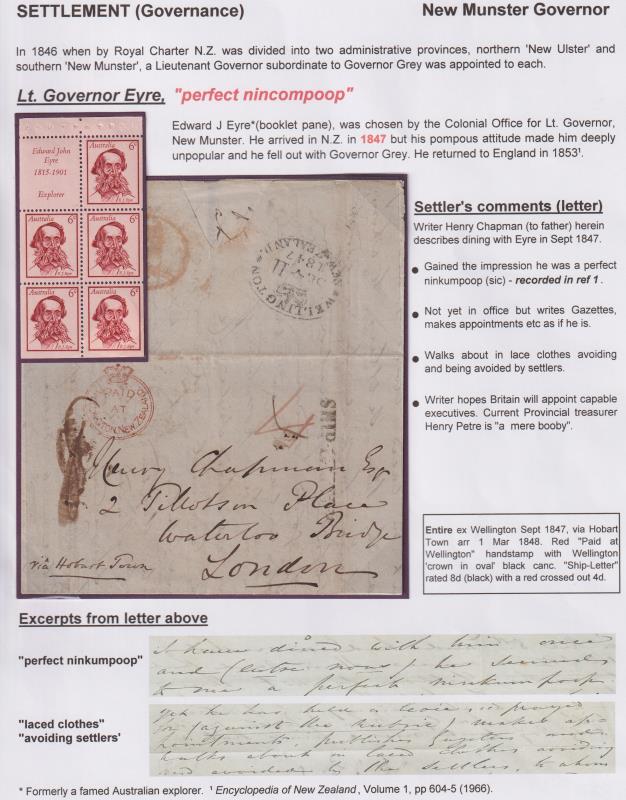 SETTLEMENT (Governance)
New Munster Governor
In 1846 when by Royal Charter N.Z. was divided into two administrative provinces, northern 'New Ulster' and
southern 'New Munster', a Lieutenant Governor subordinate to Governor Grey was appointed to each.
Lt. Governor Eyre, "perfect nincompoop"
Edward J Eyre*(booklet pane), was chosen by the Colonial Office for Lt. Governor,
New Munster. He arrived in N.Z. in 1847 but his pompous attitude made him deeply
unpopular and he fell out with Governor Grey. He returned to England in 1853¹.
Edward John
Eyre
1815-1901
Explorer
Australia 6c
Australia 6c
Australia 6c
Australia 6c
Australia 6c
WELLINGTON
NEW ZEALAND
1847
PAID
AT
WELLINGTON, NEW ZEALAND
4
SHIP
Henry Chapman Esq
2 Tillotson Place
Waterloo Bridge
London
via Hobart Town
Settler's comments (letter)
Writer Henry Chapman (to father) herein
describes dining with Eyre in Sept 1847.
● Gained the impression he was a perfect
ninkumpoop (sic) - recorded in ref 1.
● Not yet in office but writes Gazettes,
makes appointments etc as if he is.
● Walks about in lace clothes avoiding
and being avoided by settlers.
● Writer hopes Britain will appoint capable
executives. Current Provincial treasurer
Henry Petre is "a mere booby".
Entire ex Wellington Sept 1847, via Hobart
Town arr 1 Mar 1848. Red "Paid at
Wellington" handstamp with Wellington
'crown in oval' black canc. "Ship-Letter"
rated 8d (black) with a red crossed out 4d.
Excerpts from letter above
"perfect ninkumpoop"
I have dined with him once
and (entre nous) he seemed
to me a perfect ninkumpoop
"laced clothes"
"avoiding settlers'
yet he has held a levee, is prayed
for (against the rubric) makes ap-
pointments, publishes Gazettes and
walks about in laced clothes avoiding
and avoided by the settlers, to whom
* Formerly a famed Australian explorer. ¹ Encyclopedia of New Zealand, Volume 1, pp 604-5 (1966).